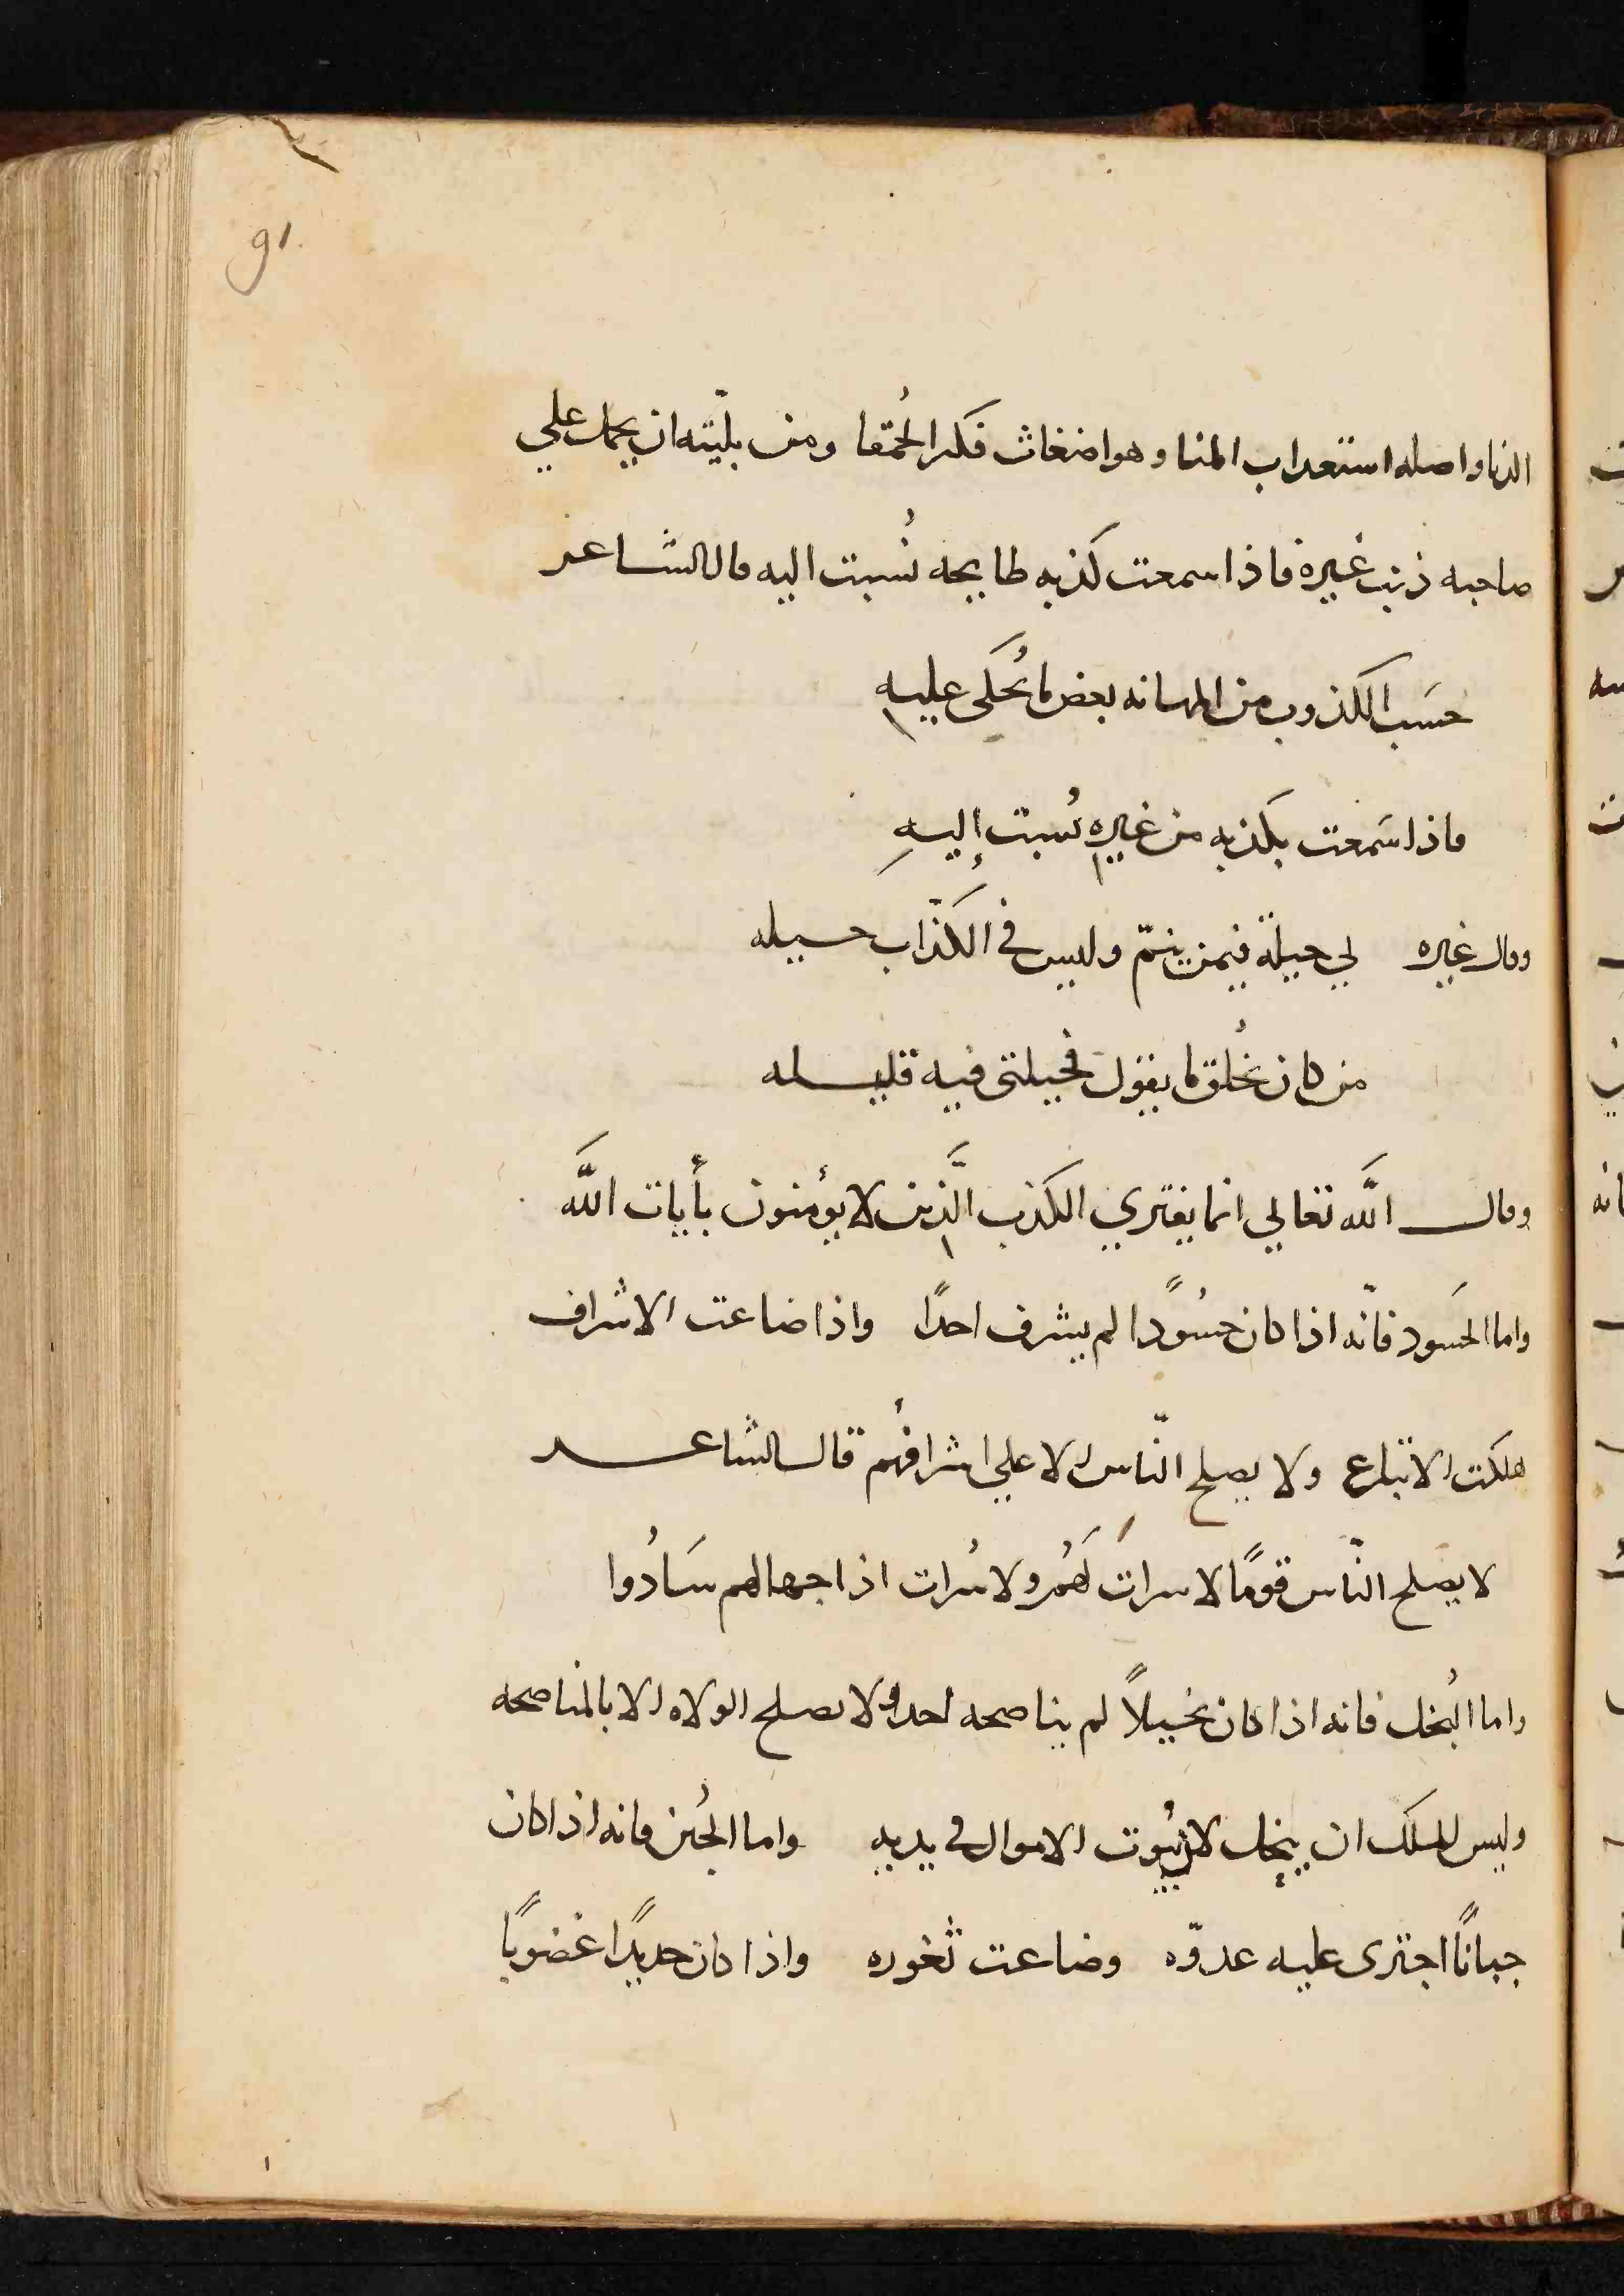 91.
الزنا واصله استعداب المنا وهو اضغاث فكر الحُمقا ومن بليّته ان يحمل علي
صاحبه ذنب غيره فاذا سمعت كذبه طايحه نُسبت اليه قال الشاعر
حسَب الكذوب من المهانه بعض ما يُحكى عليه
فاذا سَمعت بكذبه من غيره نُسبت إليهِ
وقال غيره لي حيلة فيمن ينمّ وليس في الكذّاب حيله
من كان يخُلق ما يقول فحيلتى فيه قليله
وقال اللَّه تعالي انما يفتري الكذب الَّذين لا يؤمنون بأيات اللَّه
واما الحَسود فانّه اذا كان حسُودًا لم يشرف احدًا واذا ضاعت الاشراف
هلكت الاتباع ولا يصلح النّاس الا علي اشرافهُم قال الشاعر
لا يصلح النّاس قومًا لا سراتَ لهَمُ ولا سُرات اذا جهالهم سَادُوا
واما البُخل فانه اذا كان بخيلاً لم يناصحه احد ولا تصلح الولاه الا بالمناصحه
وليس للملك ان يبخل لان بيُوت الاموال في يديه واما الجُبن فانه اذا كان
جبانًا اجترى عليه عدوّه وضاعت ثغوره واذا كان حديدًا غضوبًا